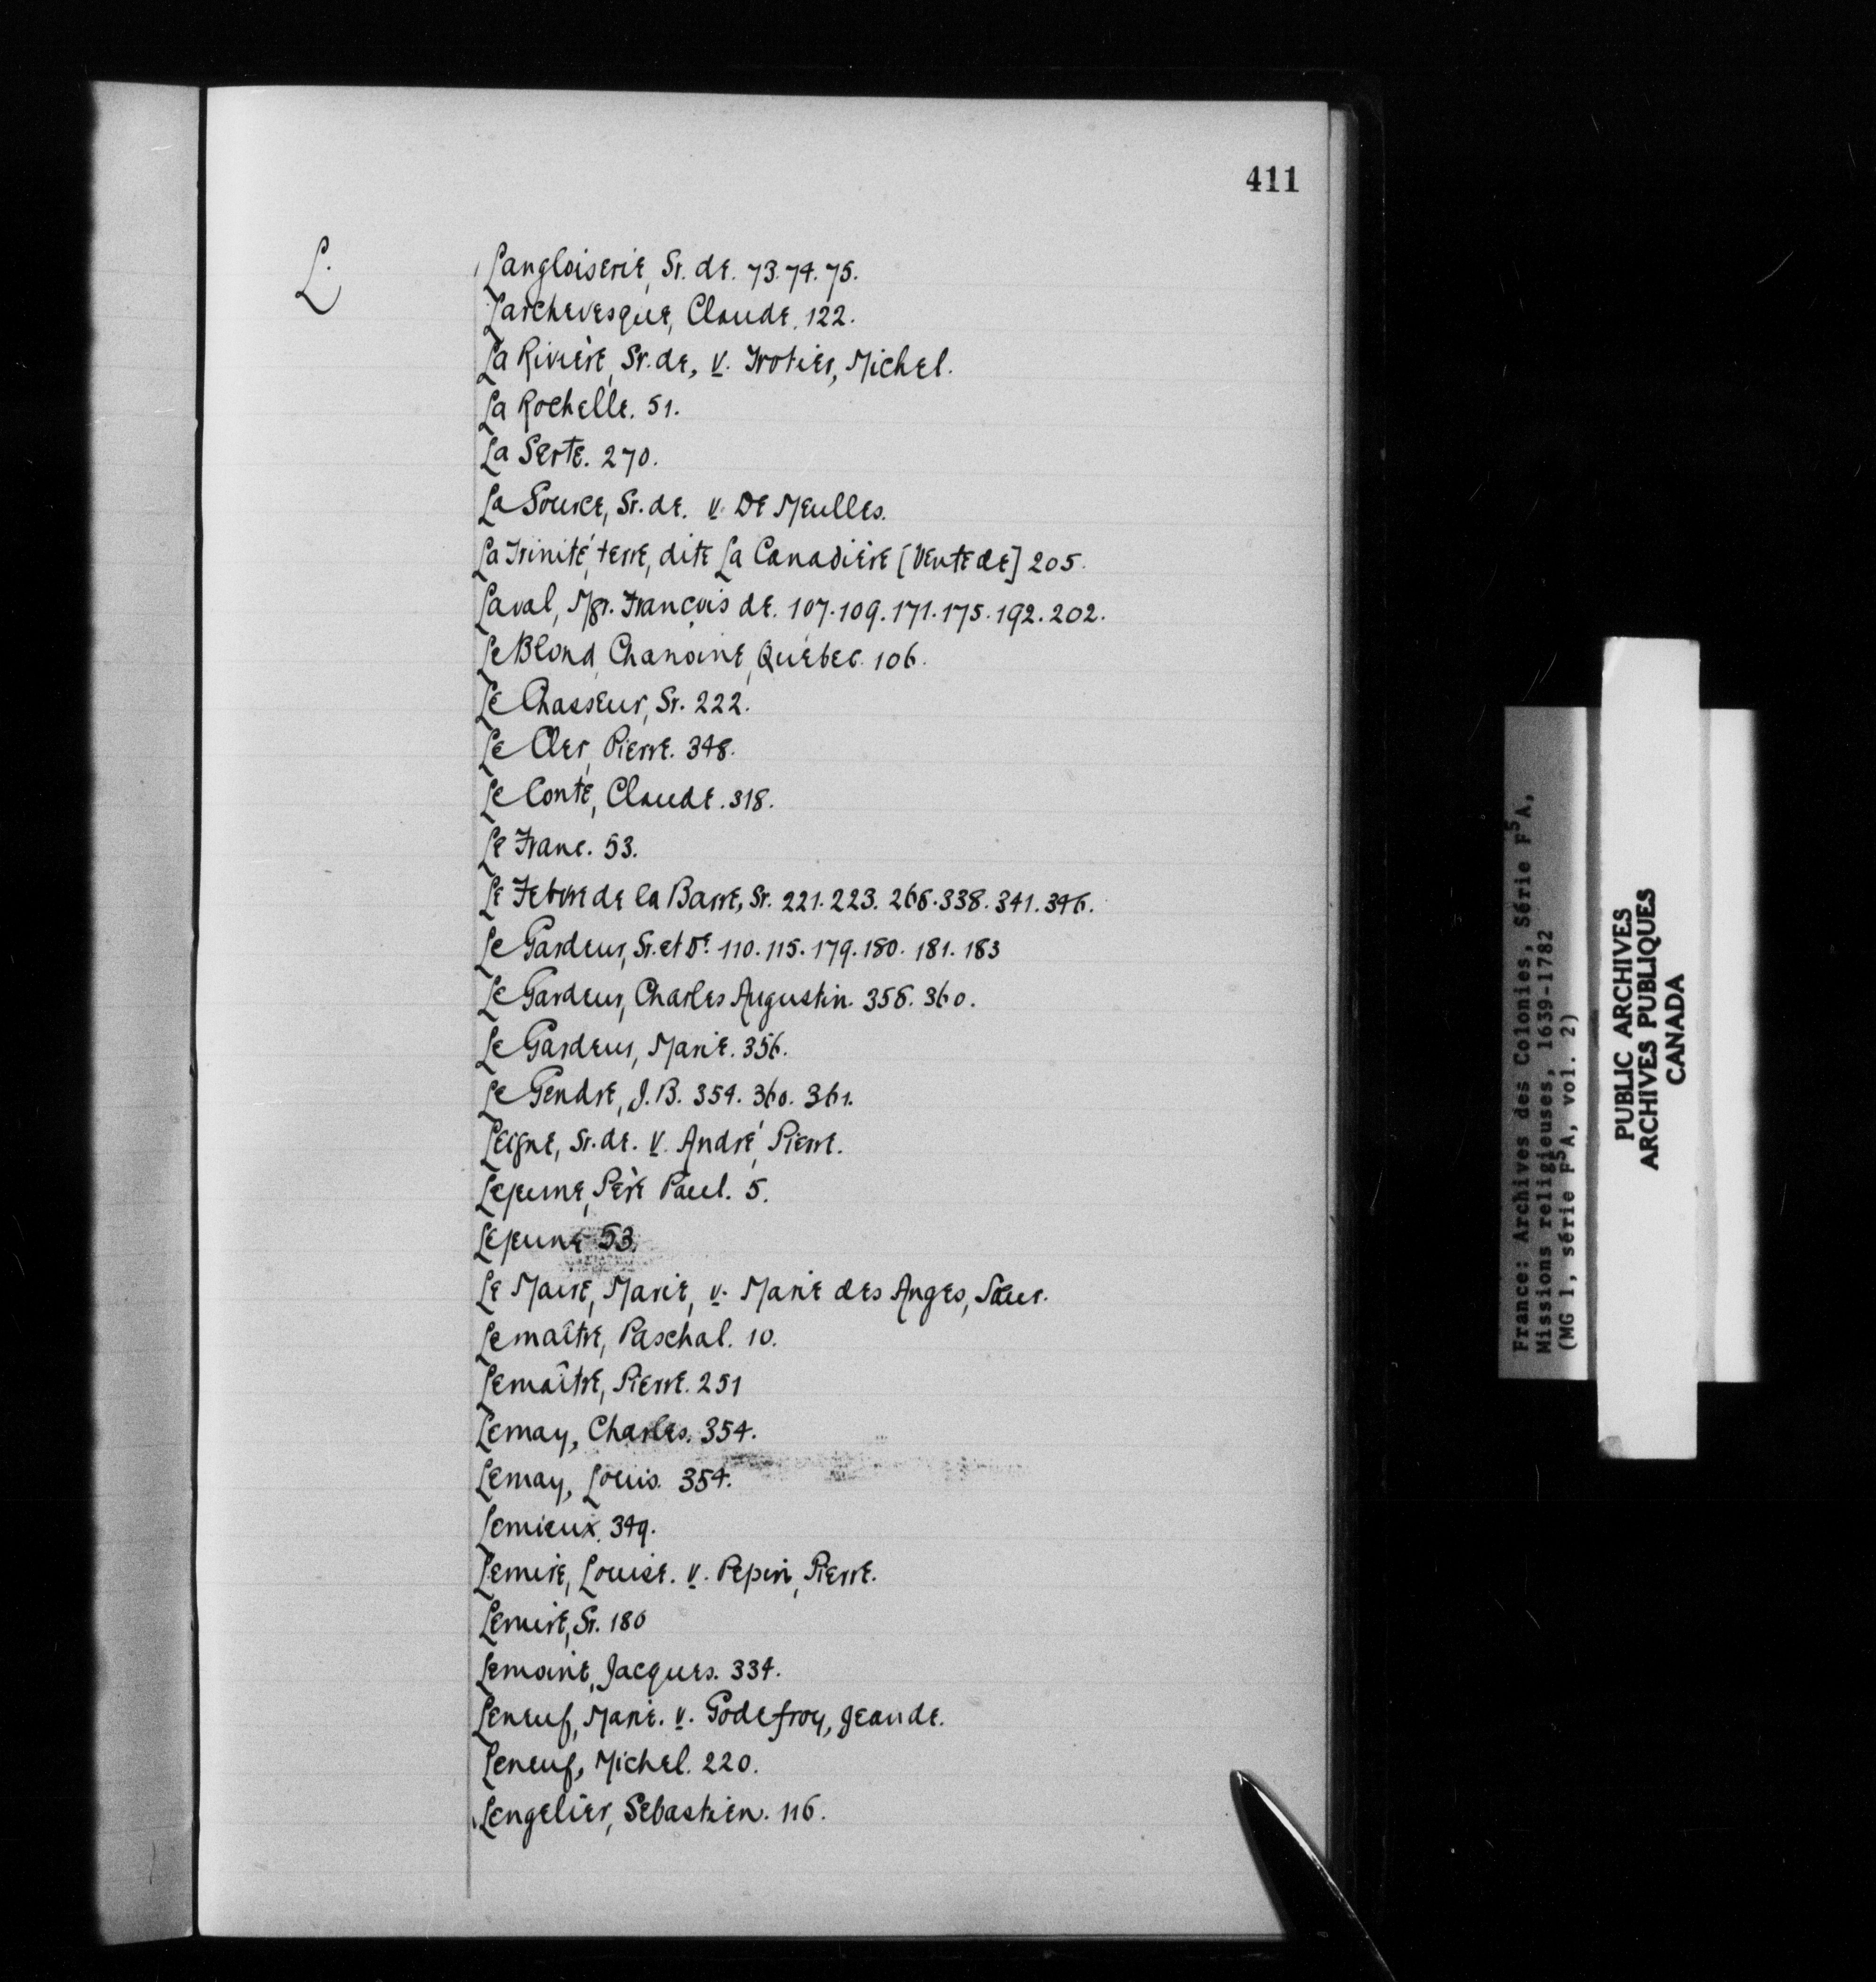 411
L.
Langloiserie, Sr. de. 73. 74. 75.
Larchevesque, Claude. 122.
La Rivière, Sr. de, v. Trotier, Michel.
La Rochelle. 51.
La Serte. 270.
La Source, Sr. de. v. De Meulles.
La Trinité, terre, dite La Canadière [Vente de] 205.
Laval, Mgr. François de. 107. 109. 171. 175. 192. 202.
Le Blond, Chanoine, Québec. 106.
Le Chasseur, Sr. 222.
Le Cler, Pierre. 348.
Le Conte, Claude. 318.
Le Franc. 53.
Le Febvre de la Barre, Sr. 221. 223. 266. 338. 341. 346.
Le Gardeur, Sr. et De. 110. 115. 179. 180. 181. 183
Le Gardeur, Charles Augustin. 358. 360.
Le Gardeur, Marie. 356.
Le Gendre, J. B. 354. 360. 361.
Leigne, Sr. de. v. André, Pierre.
Lejeune, Père Paul. 5.
Lejeune 53.
Le Maire, Marie, v. Marie des Anges, Sœur.
Lemaître, Paschal. 10.
Lemaître, Pierre. 251
Lemay, Charles. 354.
Lemay, Louis. 354.
Lemieux. 349.
Lemire, Louise. v. Pepin, Pierre.
Lemire, Sr. 180
Lemoine, Jacques. 334.
Leneuf, Marie. v. Godefroy, Jeande.
Leneuf, Michel. 220.
Lengelier, Sebastien. 116.
France: Archives des Colonies, Série F5A,
Missions religieuses, 1639-1782
(MG 1, série F5A, vol. 2)
PUBLIC ARCHIVES
ARCHIVES PUBLIQUES
CANADA